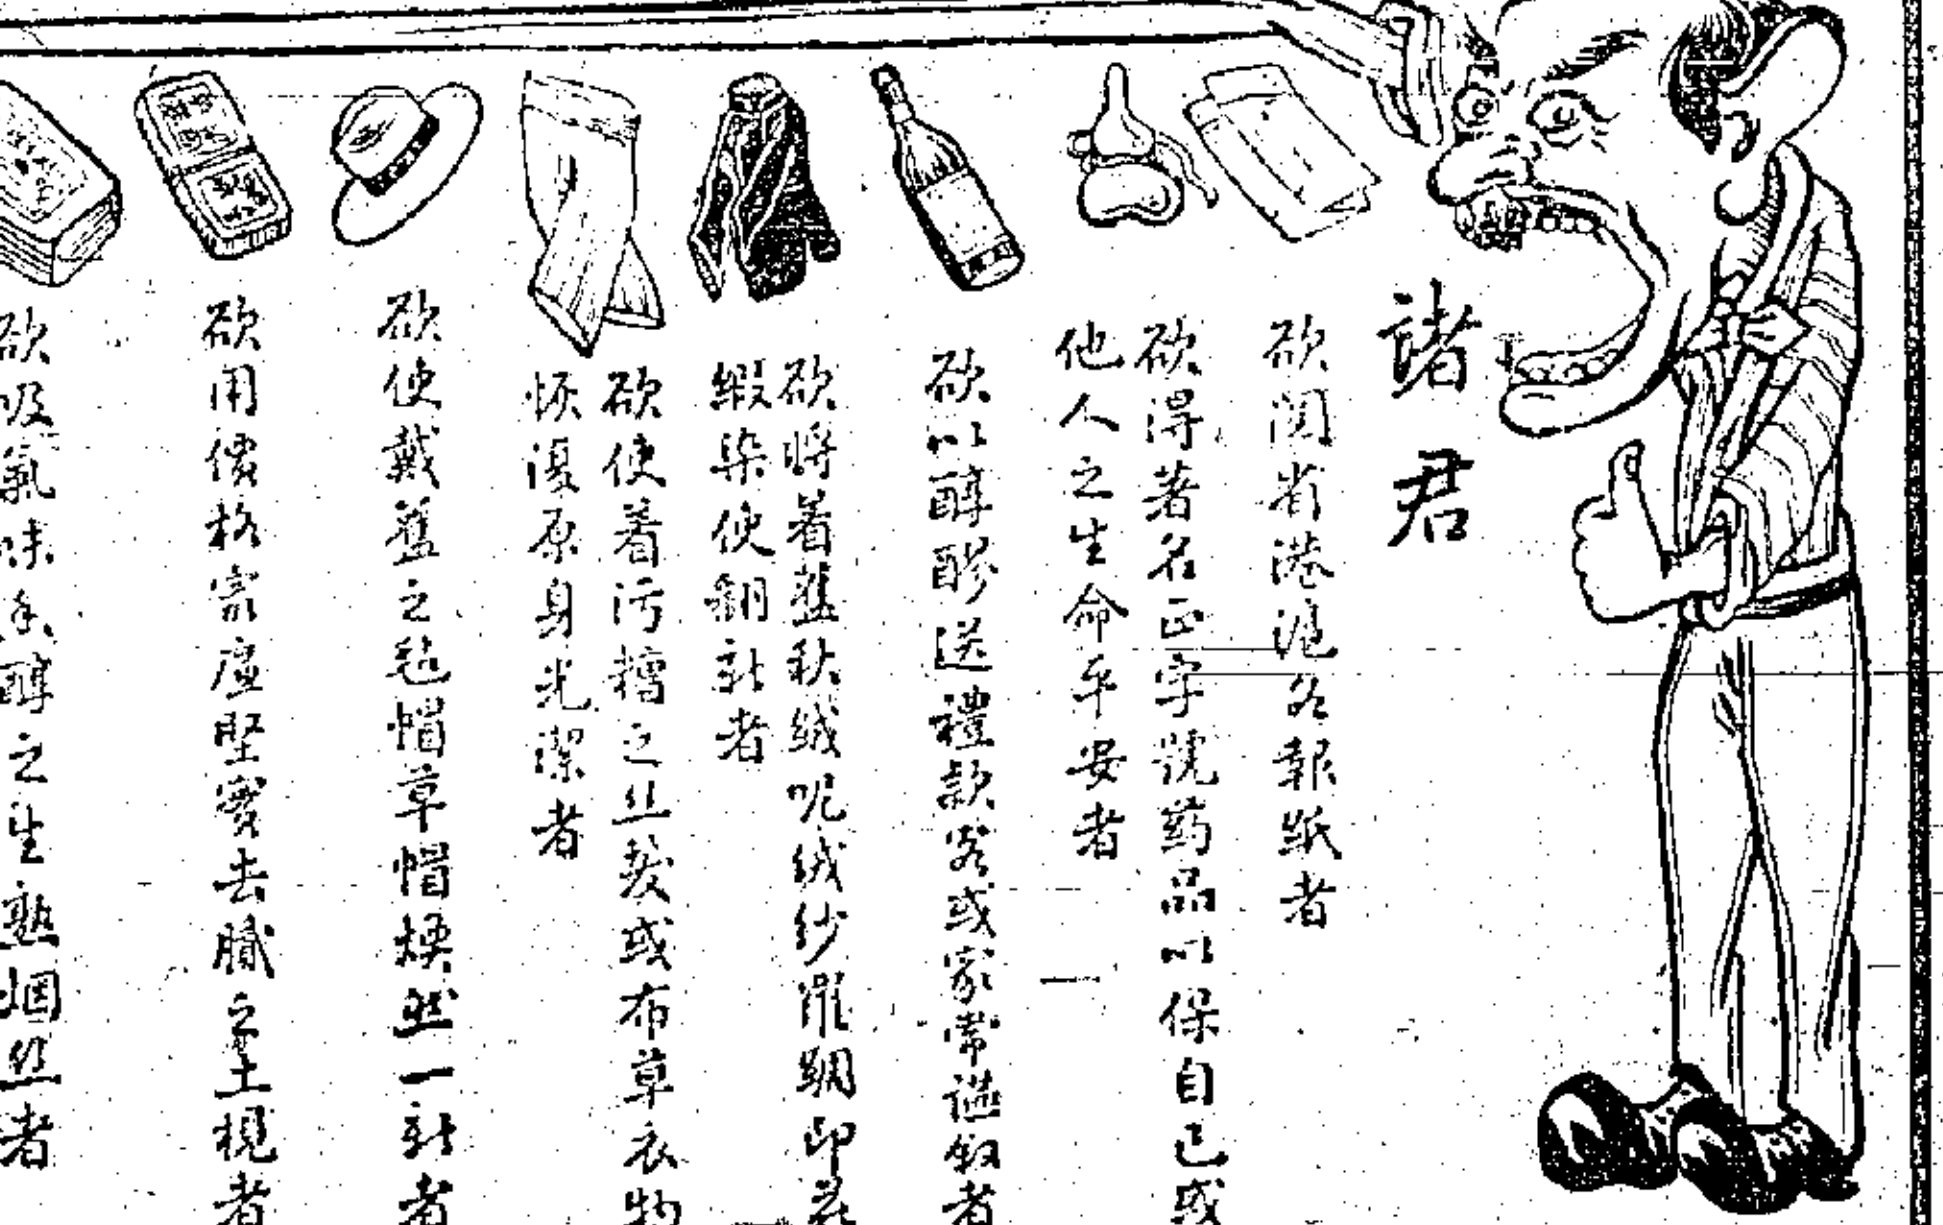 諸君
欲閱省港滬各報紙者
欲得著名正字號葯品以保自己或
他人之生命平安者
欲以醇醪送禮款客或家常讌叙者
欲將着舊秋絨呢絨紗羅綢印花
緞染使翻新者
欲使着污糟之丝髮或布草衣物
恢復原身光潔者
欲使戴舊之毡帽草帽煥然一新者
欲用價格家廉堅實去膩之土枧者
欲吸氣味香醇之生熟烟丝者